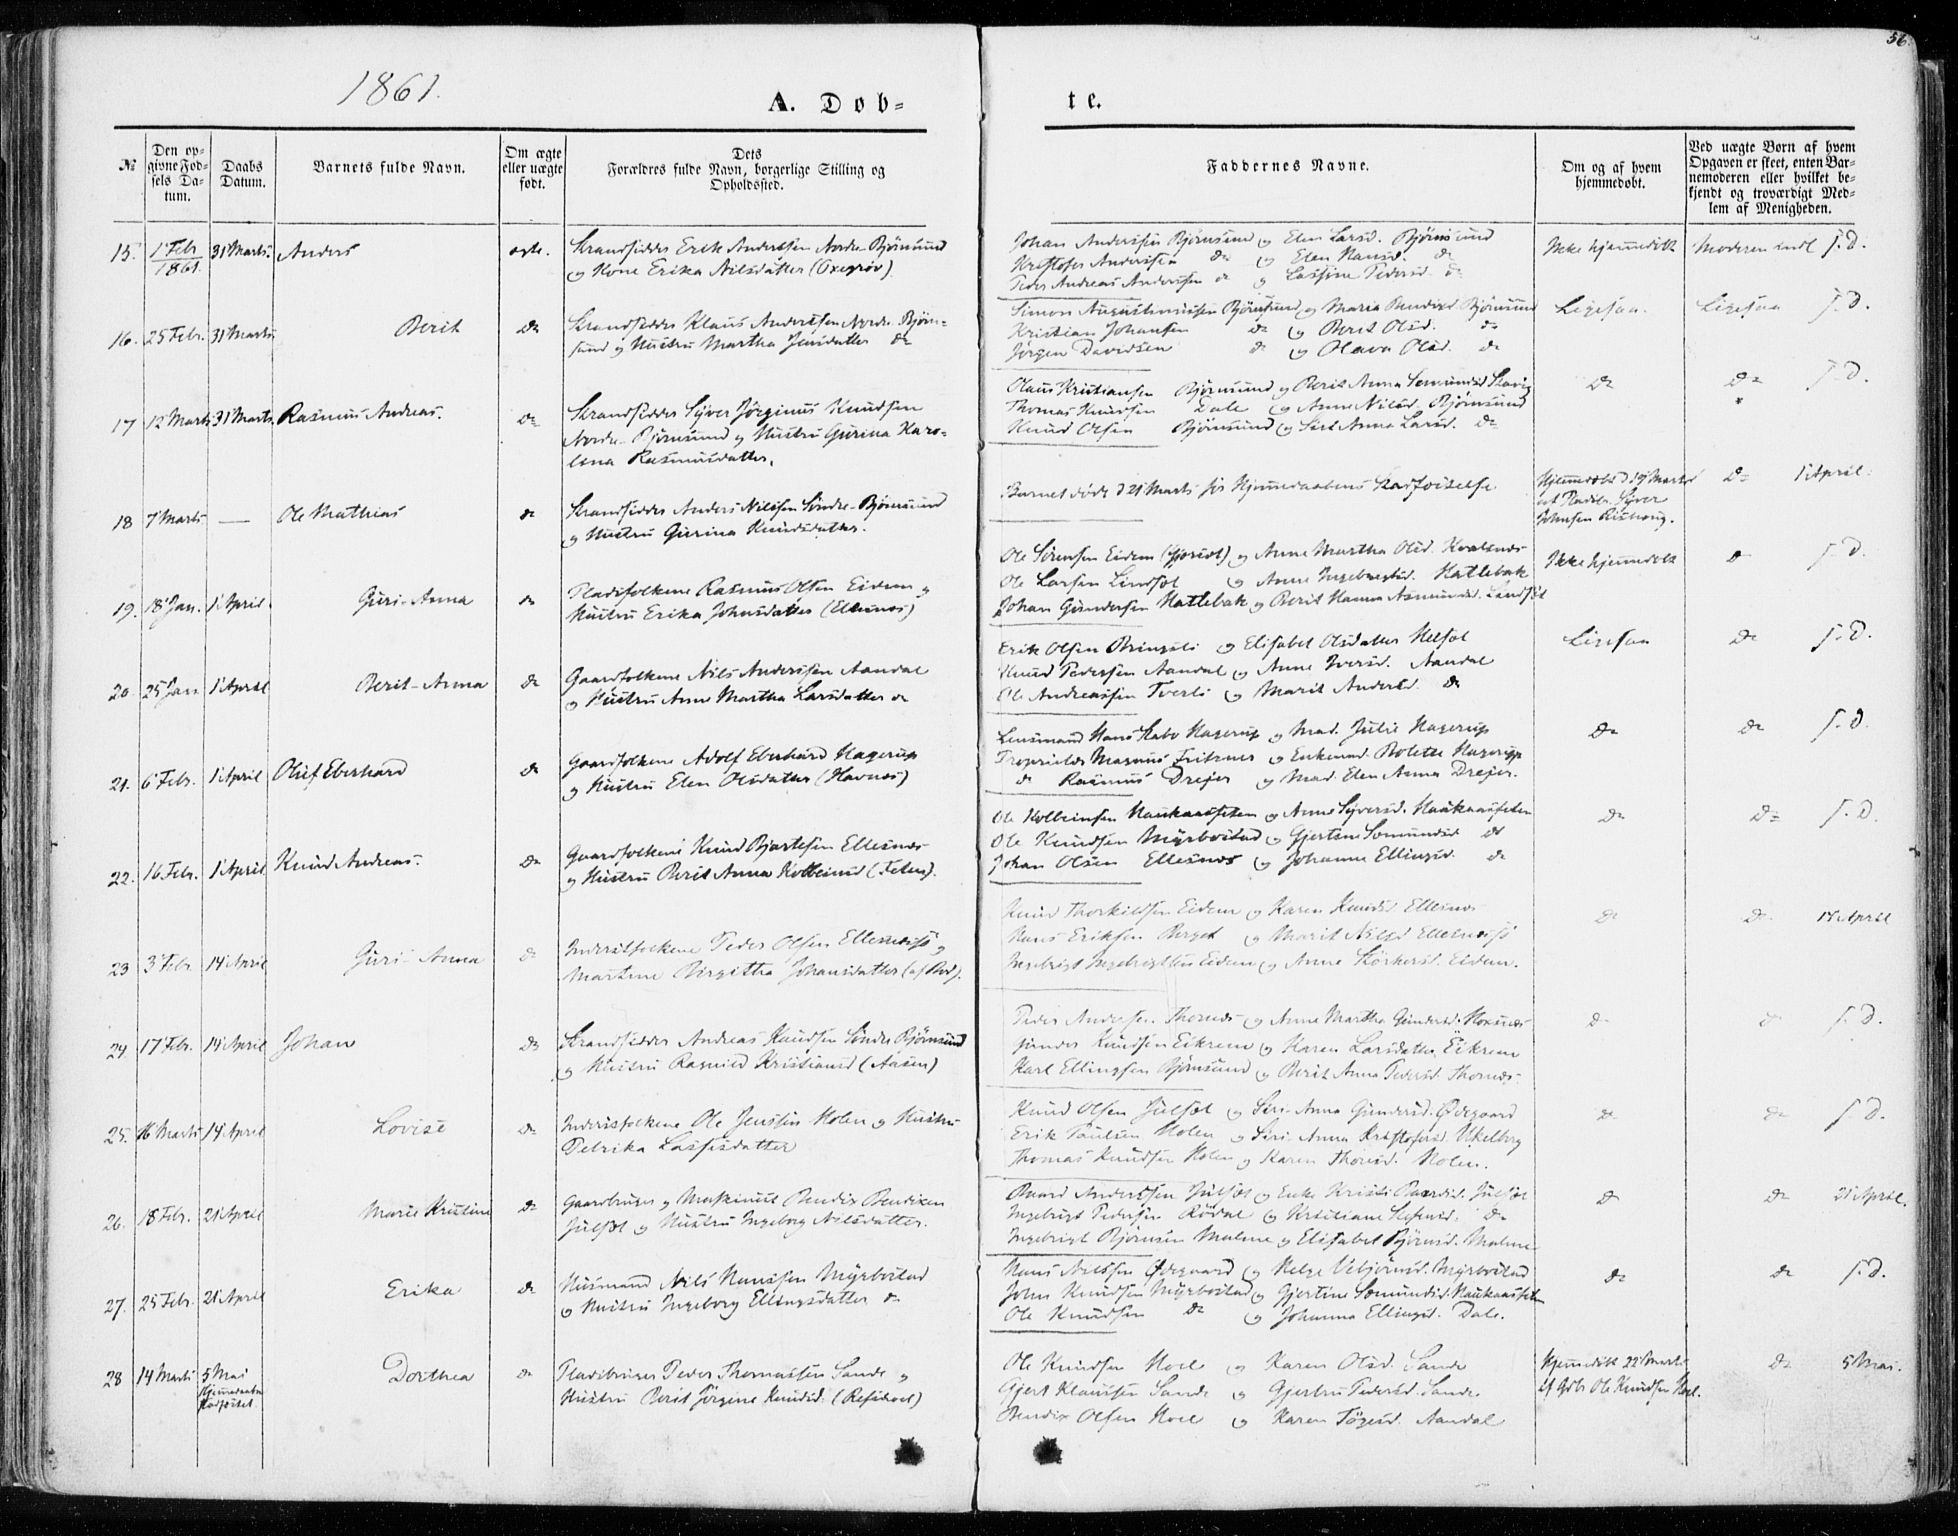 56.
1861.
A. Dob-
te.
№
Den op-
givne Fød-
sels Da-
tum.
Daabs
Datum.
Barnets fulde Navn.
Om ægte
eller uægte
født.
Dets
Forældres fulde Navn, borgerlige Stilling og
Opholdssted.
Faddernes Navne.
Om og af hvem
hjemmedøbt.
Ved uægte Børn af hvem
Opgaven er skeet, enten Bar-
nemoderen eller hvilket be-
kjendt og troværdigt Med-
lem af Menigheden.
15. 1 Febr 1861. 31 Marts. Anders ægte. Strandsidder Erik Anderssen Nordre Bjørnsund
og Kone Erika Nilsdatter
Johan Anderssen Bjørnsund og Elen Larsd. Bjørnsund
Kristofer Anderssen do og Elen Hansd. do
Peder Andreas Anderssen do og Pedersd. do
Ikke hjemmedøbt Moderen indl s. D.
16. 25 Febr. 31 Marts Berit do Strandsidder Klaus Anderssen Nordre Bjørn-
sund og Hustru Martha Jensdatter do
Simon Bjørnsund og Maria Bendixd Bjørnsund
Kristian Johansen do og Berit Olsd. do
Jørgen Davidsen do og Olava Olsd. do
Ligesaa. Ligesaa s. D.
17 12 Marts 31 Marts. Rasmus Andreas. do Strandsidder Syver Jørginus Knudsen
Nordre Bjørnsund og Hustru Gurina Karo-
lina Rasmusdatter.
Olaus Kristiansen Bjørnsund og Berit Anna
Thomas Knudsen Dale og Anne Nilsd. Bjørnsund
Knud Olsen Bjørnsund og Anna Larsd. do
do do s. D.
18 7 Marts — Ole Mathias do Strandsidder Anders Nilssen Søndre Bjørnsund
og Hustru Gurina Knudsdatter.
Barnet døde d 21 Marts før Hjemmedaabens Stadfæstelse
Hjemmedøbt d. 19 Marts
af Pladsm. Syver
Johnsen
do 1 April.
19. 18 Jan. 1 April. Guri-Anna do Pladsfolkene Rasmus Olsen Eidem og
Hustru Erika Johnsdatter (Ellesnes)
Ole Sørensen Eidem og Anne Martha Olsd.
Ole Larsen Lindset og Anne Ingebregtsd. Hatlebak
Johan Gundersen Hatlebak og Berit Hanna Asmundsd. Lindset
Ikke hjemmedøbt do s. D.
20 25 Jan 1 April Berit-Anna do Gaardfolkene Nils Anderssen Aandal
og Hustru Anne Martha Larsdatter do
Erik Olsen Bringsli og Elisabet Olsdatter Helset
Knud Pedersen Aandal og Anne Iversd. Aandal
Ole Andreassen Tverli og Marit Andersd. do
Ligesaa do s. D.
21. 6 Febr. 1 April Oluf Eberhard do Gaardfolkene Adolf Eberhard Hagerup
og Hustru Elen Olsdatter (Havnes)
Lensmand Hans Hagerup og Mad. Julie Hagerup
Proprietær Magnus Fritzner og Enkemad. Bolette Hagerup
do Rasmus Drejer og Mad. Elen Anna Drejer.
do do s. D.
22. 16 Febr. 1 April Knud Andreas. do Gaardfolkene Knud Bjartesen Ellesnes
og Hustru Berit Anna Kolbeinsd (Feten).
Ole Kolbeinsen Haukaassetem og Anne Syversd. Haukaassetem
Ole Knudsen Myrbostad og Gjertine Somundsd do
Johan Olsen Ellesnes og Johanne Ellingsd. do
do do s. D.
23 3 Febr. 14 April Guri-Anna do Inderstfolkene Peder Olsen og
Martine Birgitha Johansdatter
Knud Thorkildsen Eidem og Karen Knudsd. Ellesnes
Hans Eriksen Berget og Marit Nilsd
Ingebrigt Ingebrigtsen Eidem og Anne Eidem.
do do 14 April
24. 17 Febr. 14 April Johan do Strandsidder Andreas Knudsen Søndre Bjørnsund
og Hustru Ragnild Kristiansd (Aasen)
Peder Andersen Thornes og Anne Martha Gundersd.
Gunder Knudsen Eikrem og Karen Larsdatter Eikrem
Karl Ellingsen Bjørnsund og Berit Anna Pedersd. Thornes
do do s. D.
25. 16 Marts 14 April Lovise do Inderstfolkene Ole Jenssen Holen og Hustru
Petrika Lassesdatter
Knud Olsen Julset og Siri-Anna Gundersd. Ødegaard
Erik Paulsen Holen og Siri Anna Kristofersd.
Thomas Knudsen Holen og Karen Thoresd. Holen.
do do s. D.
26. 18 Febr. 21 April Marie Kristine do Gaardbruger og Bendix Bendixen
Julset og Hustru Ingeborg Nilsdatter.
Baard Anderssen Julset og Enke Kristi Baardsd. Julset
Ingebrigt Pedersen Rødal og Kristiane do
Ingebrigt Bjørnsen Malme og Elisabet Bjørnsd. Malme
do do 21 April.
27. 25 Febr. 21 April Erika do Husmand Nils Hanssen Myrbostad
og Hustru Ingeborg Ellingsdatter do
Hans Nilssen Ødegaard og Helge Vebjørnsd. Myrbostad
John Knudsen Myrbostad og Gjertine Somundsd. Haukaassetem
Ole Knudsen do og Johanna Ellingsd. Dale.
do do s. D.
28 14 Marts 5 Mai
Hjemmedaaben
stadfæstet.
Dorthea do Pladsbruger Peder Thomassen Sande og
Hustru Berit Jørgine Knudsd.
Ole Knudsen Hoel og Karen Olsd. Sande
Gjert Klaussen Sande og Gjertru Pedersd. Sande.
Bendix Olsen Hoel og Karen Aandal
Hjemmedøbt 22 Marts
af Gdbr. Ole Knudsen Hoel.
do 5 Mai.